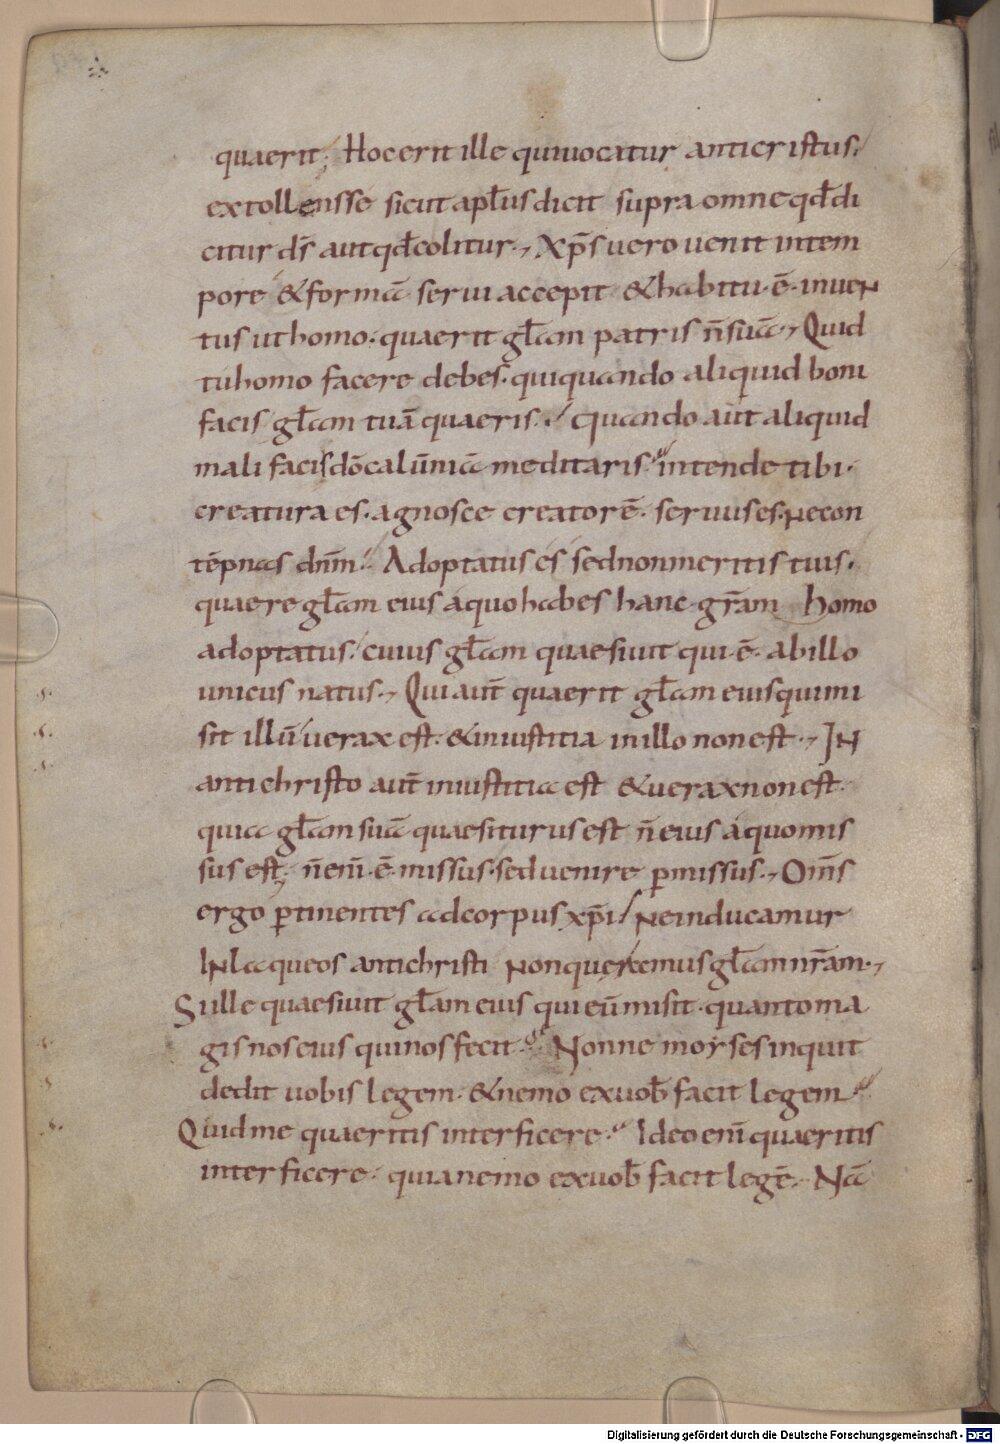 quaerit; Hoc erit ille qui uocatur anticristus.
extollens se sicut apłus dicit supra omne qđ di
citur dś aut qđ colitur., Xp̄s uero uenit in tem
pore & formā serui accepit & habitu·ē·inuen
tus ut homo·quaerit gło̅am patris n̄ suā., Quid
tu homo facere debes·qui quando aliquid boni
facis głam tuā quaeris. Quando aūt aliquid
mali facis dō calūniā meditaris. intende tibi·
creatura es·agnosce creatorē·seruus es·necon
tēpnas dn̄m. Adoptatus es sed non meritis tuis.
quaere głam eius a quo habes hanc gr̄am homo
adoptatus. cuius głam quaesiuit qui·ē·ab illo
unicus natus., Qui aūt quaerit głam eius qui mi
sit illū uerax est. & iniustitia in illo non est., In
antichristo aūt iniustitia est & uerax non est.
quia głam suā quaesiturus est n̄ eius a quo mis
sus est; n̄ eni̅·ē·missus·sed uenire p̄missus., Om̄s
ergo p̄tinentes ad corpus xp̄i ne inducamur
In laqueos antichristi non queramus głam nr̄am.,
Si ille quaesiuit głam eius qui eū misit·quanto ma
gis nos eius qui nos fecit. Nonne moyses inquit
dedit uobis legem·& nemo ex uob̄ facit legem
Quid me quaeritis interficere. Ideo eni̅ quaeritis
interficere· quia nemo ex uob̄ facit legē. Nā
Digitalisierung gefördert durch die Deutsche Forschungsgemeinschaft - DFG